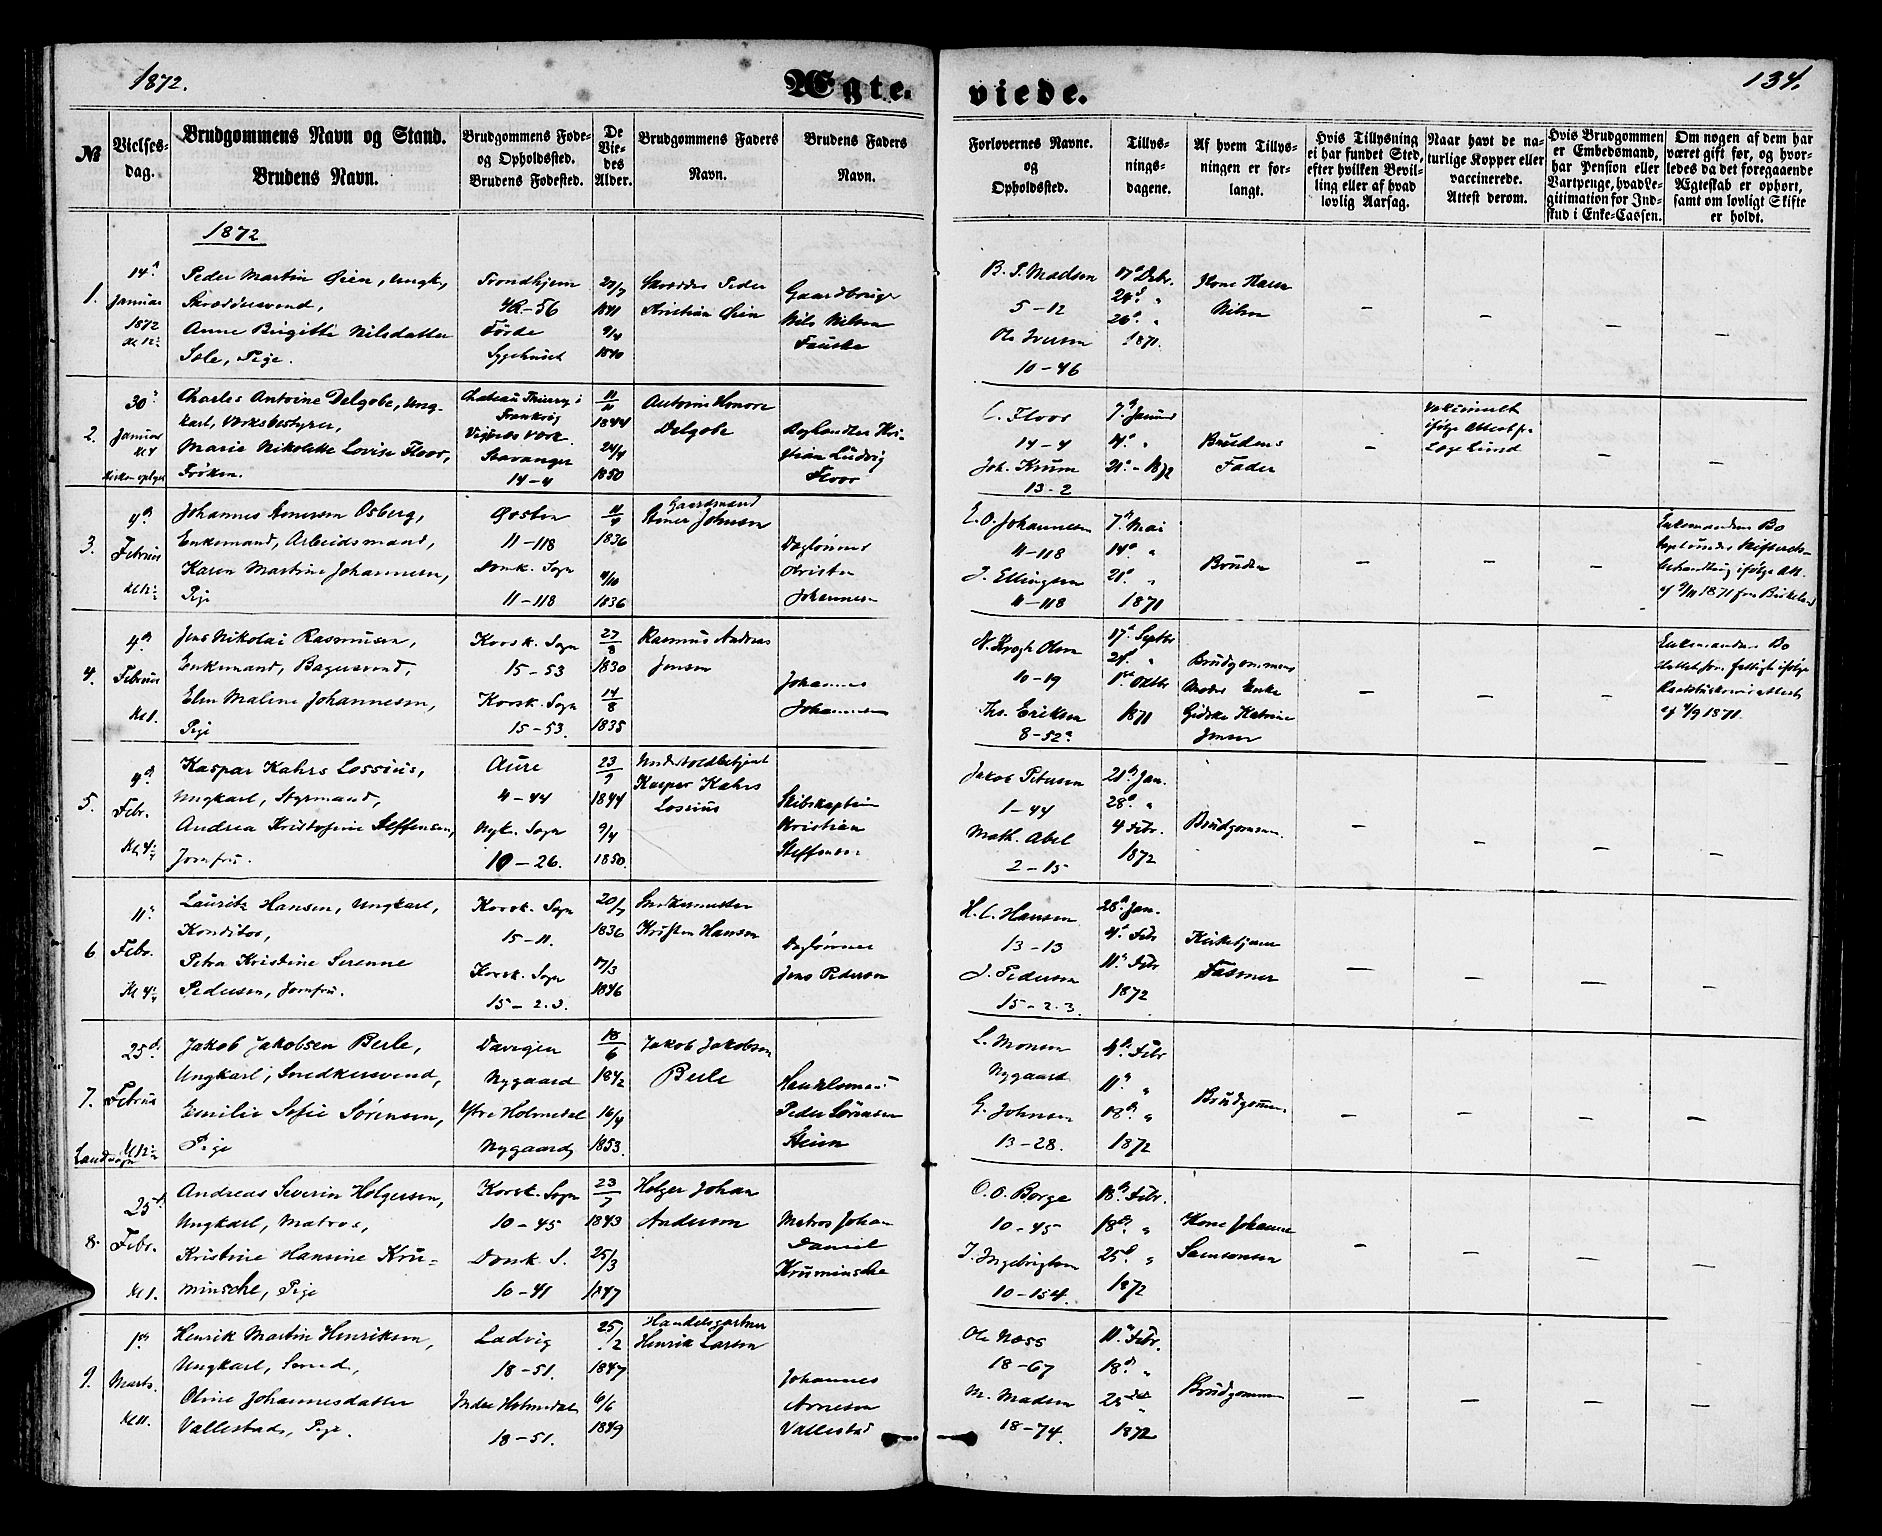 1872.
Ægte-
viede.
134.
№
Vielses-
dag.
Brudgommens Navn og Stand.
Brudens Navn.
Brudgommens Føde-
og Opholdssted.
Brudens Fødested.
De
Vie-
des
Alder.
Brudgommens Faders
Navn.
Brudens Faders
Navn.
Forlovernes Navne.
og
Opholdssted.
Tillys-
nings-
dagene.
Af hvem Tillys-
ningen er for-
langt.
Hvis Tillysning
ei har fundet Sted,
efter hvilken Bevil-
ling eller af hvad
lovlig Aarsag.
Naar havt de na-
turlige Kopper eller
vaccinerede.
Attest derom.
Hvis Brudgommen
er Embedsmand,
har Pension eller
Vartpenge, hvad Le-
gitimation for Ind-
skud i Enke-Cassen.
Om nogen af dem har
været gift før, og hvor-
ledes da det foregaaende
Ægteskab er ophørt,
samt om lovligt Skifte
er holdt.
1872
1.
14d
Januar
1872
Kl 12
Peder Martin Øien, Ungk,
Skræddersvend,
Anne Brigitte Nilsdatter
Sole, Pige.
Trondhjem
Førde
Sygehuset
27/7
1841
9/4
1840
Skrædder Peder
Kristian Øien
Gaardbruger
Nils Nilsen
Fauske
B. S. Madsen
5-12
Ole Iversen
10-46
17d Debr.
24d "
26d "
1871.
Kone Karen
Nilsen
2.
30d
Januar
Charles Antoine Delgobe, Ung-
karl, Værksbestyrer,
Marie Nikoline Lovise Floor,
Frøken.
Chateau Thierry i
Frankrig
Vigsnes Værk.
Stavanger
14-4
11/11
1844
24/4
1850
Antoine Honore
Delgobe
Doghandler Kri-
stian Ludvig
Floor
C. Floor
14-4
Joh. Krum
13-2
7d Januar
14d "
21d - 1872
Brudens
Fader
Vakcineret
ifølge Attest fr
Læge Lund
3.
4d
Februar
Kl 12
Johannes Asmersen Osberg,
Enkemand, Arbeidsmand,
Karen Martine Johannesen,
Pige
11-118
Domk. Sogn
11-118
1836
4/10
1836
Gaardmand
Johnsen
Daglønner
Krister
Johannesen
E. O. Johannesen
11-118
J. Ellingsen
11-118
7d Mai
14d "
21d "
1871
Bruden
Enkemandens Bo
4.
4d
Februar
Kl 1.
Jens Nikolai Rasmusen,
Enkemand, Bagersvend,
Elen Maline Johannesen,
Pige
Korsk. Sogn
15-53
Korsk. Sogn
15-53.
27/8
1830
14/8
1835
Rasmus Andreas
Jensen
Johannes
Johannesen
N. Krogh Olsen
10-19
Ths. Eriksen
8-52a
17d Septbr
24d "
1ste Oktbr
1871
Brudgommens
Moder Enke
Gidske Katrine
Jensen
Enkemandens Bo
af 4/9 1871.
5.
4d
Febr.
Kl. 4
Kaspar Kahrs Lossius,
Ungkarl, Styrmand,
Andrea Kristofine Steffensen,
Jomfru.
Aure
4-44
Nyk. Sogn
10-26.
23/9
1844
9/4
1850.
Underfoldbetjent
Kasper Kahrs
Lossius
Skibskaptein
Kristian
Steffensen
Jakob Petersen
1-44
Math. Abel
2-15
21d Jan.
28d "
4 Febr.
1872
Brudgommen.
6
11d
Febr.
Kl 4
Lauritz Hansen, Ungkarl,
Konditor,
Petra Kristine Serenne
Pedersen, Jomfru.
Korsk. Sogn
15-11.
Korsk. Sogn
15-2.3.
20/7
1836
17/3
1846
Snedkermester
Kristen Hansen
Daglønner
Jens Pedersen
H. C. Hansen
13-13
J. Pedersen
15-2.3.
28d Jan.
4d Febr
11d Febr
1872
Kirketjener
Fasmer
7.
25d
Februar
Kl 12
Landsogn
Jakob Jakobsen Berle,
Ungkarl, Snedkersvend,
Emilie Sofie Sørensen,
Pige
Davigen
Nygaard
Ytre Holmedal
Nygaard
18/6
1842
16/4
1853.
Jakob Jakobsen
Berle
Handelsmand
Peder Sørensen
Steien
L. Monsen
Nygaard
G. Johnsen
13-28.
4d Febr
11d "
18d "
1872
Brudgommen
8.
25d
Febr.
Kl 1.
Andreas Severin Holgersen,
Ungkarl, Matros,
Kristine Hansine Kru-
minsche, Pige
Korsk. Sogn
10-45
Domk. S.
10-41
23/7
1843
25/3
1847
Holger Johan
Andersen
Matros Johan
Daniel
Kruminsche
O. O. Borge
10-45
T. Ingebrigtsen
10-154.
18d Febr.
18d "
25d "
1872
Kone Johanne
Samsonsen
9.
1ste
Marts.
Kl 11.
Henrik Martin Henriksen,
Ungkarl, Smed,
Oline Johannesdatter
Vallestad, Pige.
Ladvig
18-51.
Indre Holmedal
18-51.
25/2
1847
6/6
1849
Handelsgartner
Henrik Larsen
Johannes
Arnesen
Vallestad
Ole Næss
18-67
M. Madsen
18-74.
11d Febr.
18d "
25de "
1872
Brudgommen